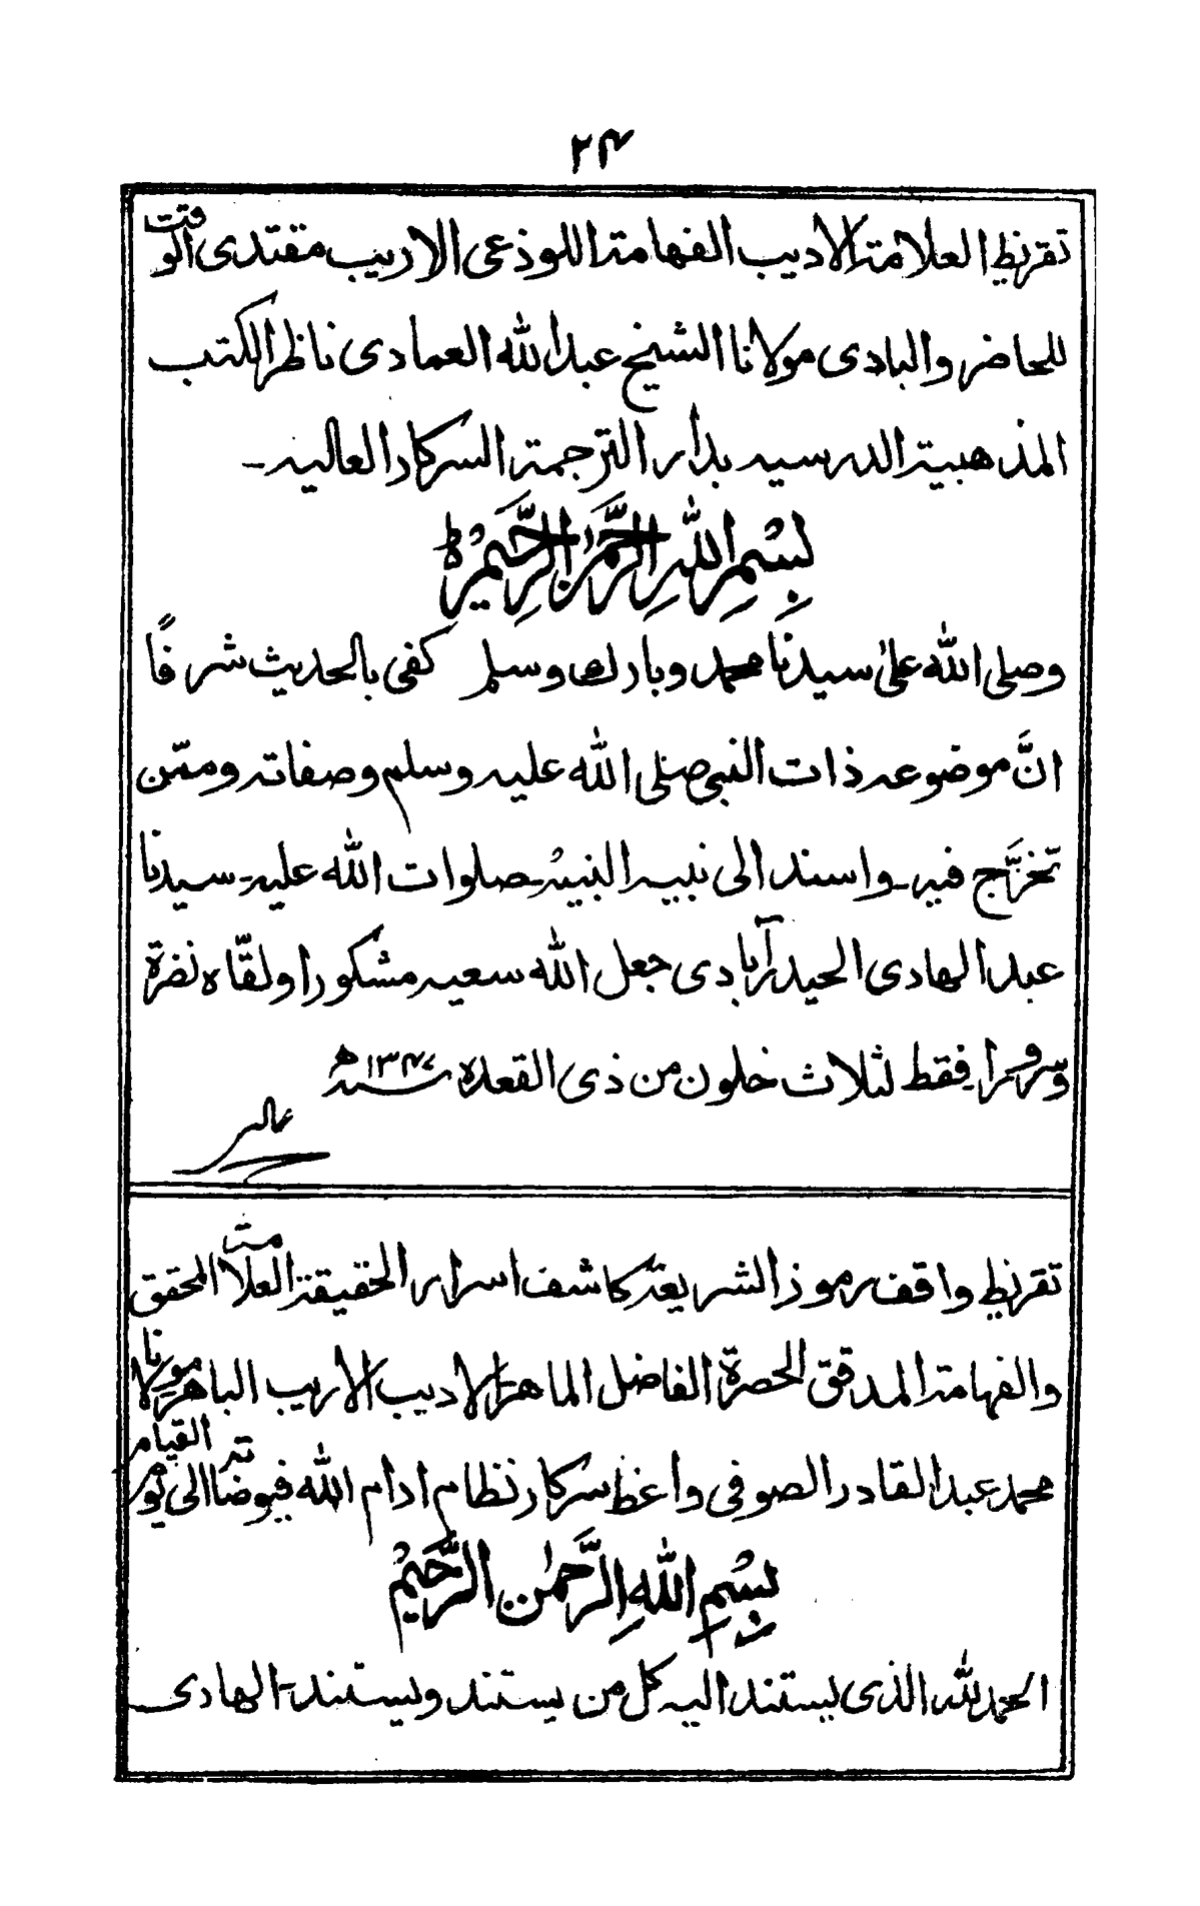 ۲۴
تقريظ العلامة الاديب الفهامة اللوذعى الاريب مقتدى الوقت
للحاضر والبادى مولانا الشيخ عبد الله العمادى ناظر الكتب
المذهبية الدرسيه بدار الترجمة السركار العاليه ـ
بِسْمِ اللهِ الرَّحْمٰنِ الرَّحِيْمِ ہ
وصلى الله على سيدنا محمد وبارك وسلم كفى بالحديث شرفًا
انَّ موضوعه ذات النبى صلى الله عليه وسلم وصفاته وممّن
تخرَّج فيه ـ واسند الى نبيه النبيه ـ صلوات الله عليه ـ سيدنا
عبد الهادى الحيدرآبادى جعل الله سعيه مشكورا ولقّاه نضرة
وسرورا ـ فقط لثلاث خلون من ذى القعده سنه ۱۳۴۷ھ
تقريظ واقف رموز الشريعة كاشف اسرار الحقيقة العلامة المحقق
والفهامة المدقق الحضرة الفاضل الماهر الاديب الاريب الباهر مولانا
محمد عبد القادر الصوفى واعظ سركار نظام ادام الله فيوضاته الى يوم القيام
بِسْمِ اللهِ الرَّحْمٰنِ الرَّحِيْمِ
الحمد لله الذى يستند اليه كل من يستند ويستند ـ الهادى